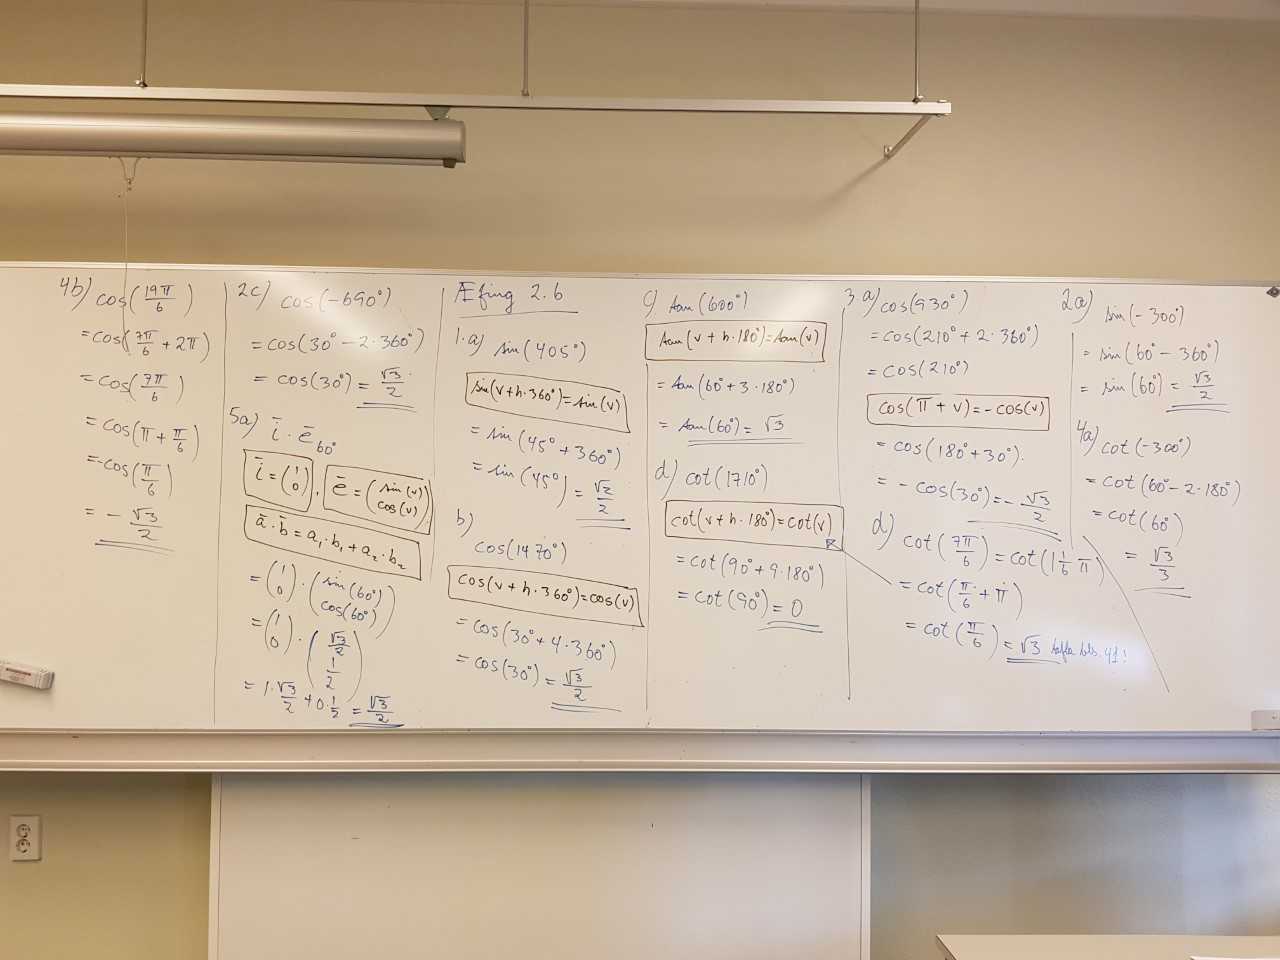 4b) cos(19π/6)
= cos(7π/6 + 2π)
= cos(7π/6)
= cos(π + π/6)
= -cos(π/6)
= - √3/2
2c) cos(-690°)
= cos(30° - 2·360°)
= cos(30°) = √3/2
5a) i̅ · e̅60°
i̅ = (1 0), e̅ = (sin(v) cos(v))
a̅ · b̅ = a₁·b₁ + a₂·b₂
= (1 0) · (sin(60°) cos(60°))
= (1 0) · (√3/2 1/2)
= 1·√3/2 + 0·1/2 = √3/2
Æfing 2.6
1.a) sin(405°)
sin(v+h·360°) = sin(v)
= sin(45° + 360°)
= sin(45°) = √2/2
b)
cos(1470°)
cos(v + h·360°) = cos(v)
= cos(30° + 4·360°)
= cos(30°) = √3/2
c) tan(600°)
tan(v + h·180°) = tan(v)
= tan(60° + 3·180°)
= tan(60°) = √3
d) cot(1710°)
cot(v + h·180°) = cot(v)
= cot(90° + 9·180°)
= cot(90°) = 0
3a) cos(930°)
= cos(210° + 2·360°)
= cos(210°)
cos(π + v) = -cos(v)
= cos(180° + 30°).
= - cos(30°) = - √3/2
d) cot(7π/6) = cot(1 1/6 π)
= cot(π/6 + π)
= cot(π/6) = √3 tafla bls. 41!
2a) sin(-300°)
= sin(60° - 360°)
= sin(60°) = √3/2
4a) cot(-300°)
= cot(60° - 2·180°)
= cot(60°)
= √3/3